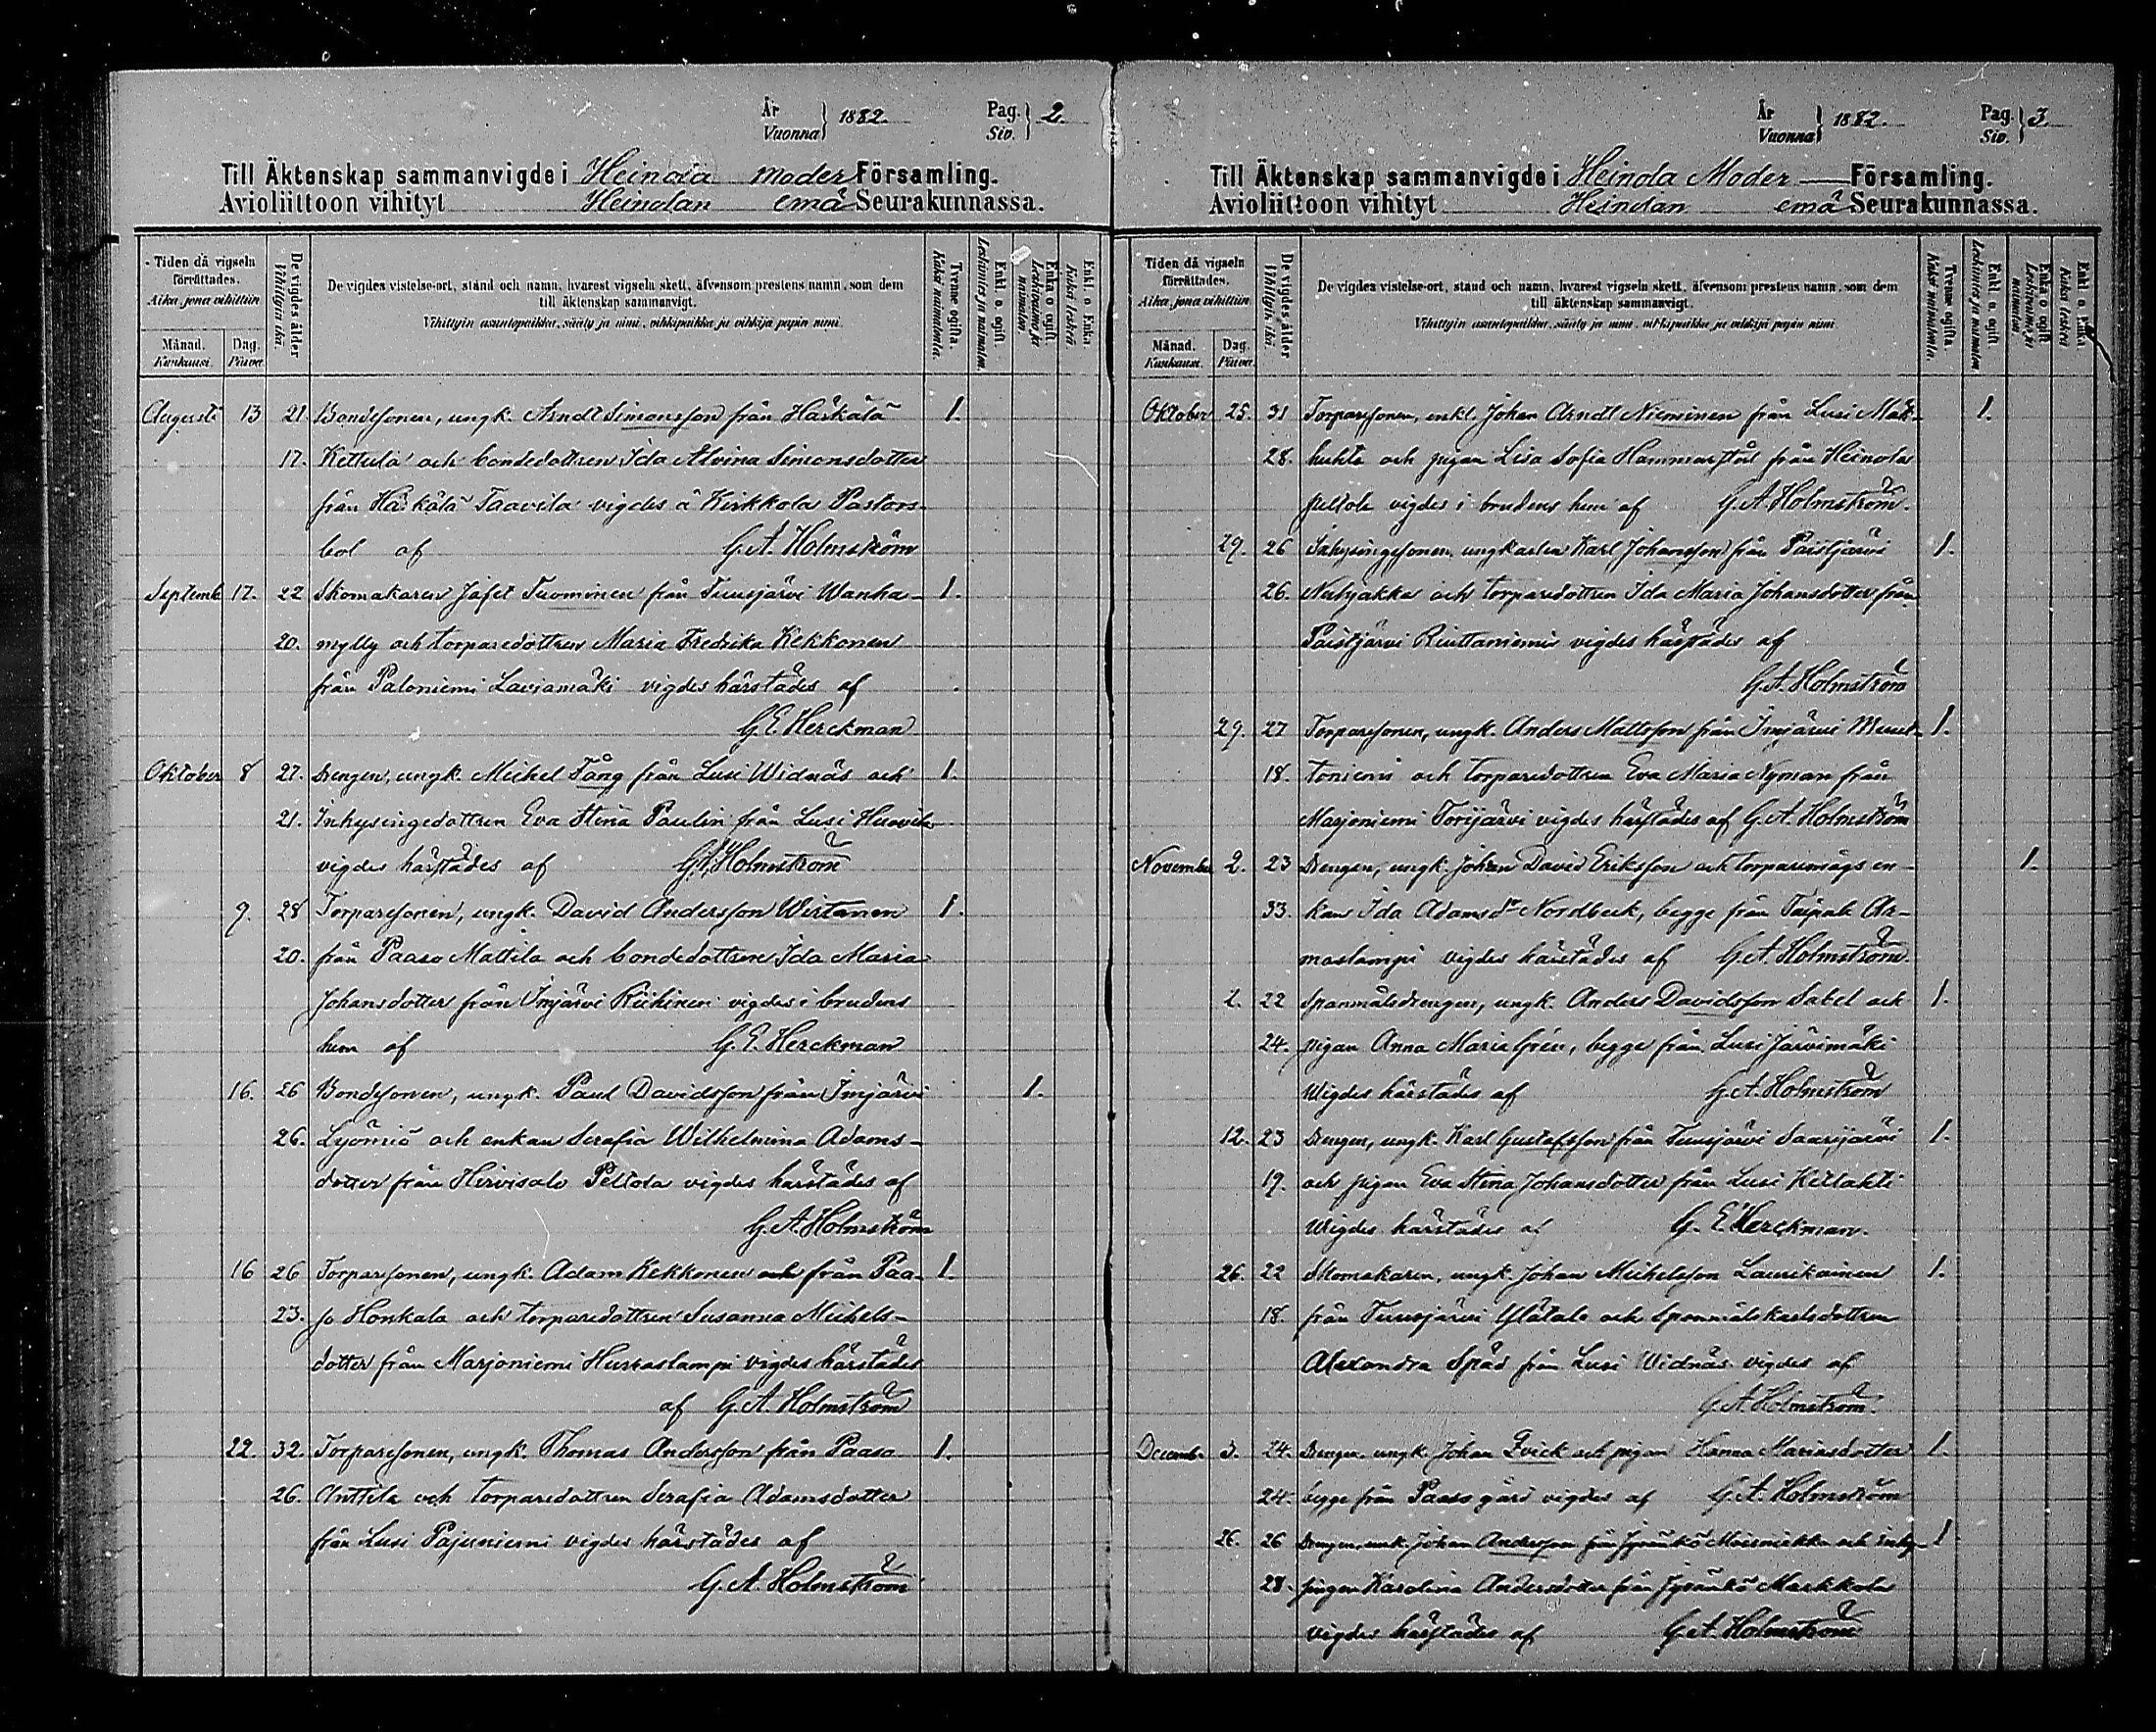 År
Vuonna } 1882.
Pag.
Siv. } 2.
Till Äktenskap sammanvigde i Heinola moder Församling.
Avioliittoon vihityt Heinolan emä Seurakunnassa.
Tiden då vigseln förrättades.
Aika, jona vihittiin
Månad. Kuukausi.
Dag. Päivä
De vigdes ålder
Vihittyin ikä.
De vigdes vistelse-ort, stånd och namn, hvarest vigseln skett, äfvensom prestens namn, som dem
till äktenskap sammanvigt.
Vihittyin asuntopaikka, sääty ja nimi, vihkipaikka ja vihkijä papin nimi.
Tvenne ogifta.
Kaksi naimatonta.
Enkl. o. ogift
Leskimies ja naimaton.
Enka o. ogift.
Leskivaimo ja naimaton.
Enkl. o. Enka.
Kaksi leskeä
Augusti 13 21. Bondesonen, ungk. Arndt Simonsson från Härkälä 1.
17. Kettula och bondedottren Ida Alvina Simonsdotter
från Härkälä Taavila vigdes å Kirkkola Pastors-
bol af G. A. Holmström
Septemb. 17. 22 Skomakaren Jafet Tuominen från Tuusjärvi Wanha- 1.
20. mylly och torparedottren Maria Fredrika Kekkonen
från Paloniemi Laviamäki vigdes härstädes af
G. E. Herckman
Oktober 8 27. Drengen, ungk. Michel Tång från Lusi Widnäs och 1.
21. Inhysingedottren Eva Stina Paulin från Lusi Huovila
vigdes härstädes af G. A. Holmström
9. 28 Torparesonen, ungk. David Andersson Wirtanen 1.
20. från Paaso Mattila och bondedottren Ida Maria
Johansdotter från Imjärvi Riihinen vigdes i brudens
hem af G. E. Herckman
16. 26 Bondesonen, ungk. Paul Davidsson från Imjärvi 1.
26. och enkan Serafia Wilhelmina Adams-
dotter från Hirvisalo Peltola vigdes härstädes af
G. A. Holmström
16 26 Torparesonen, ungk. Adam Kekkonen från Paa- 1.
23. so Honkala och torparedottren Susanna Michels-
dotter från Marjoniemi vigdes härstädes
af G. A. Holmström
22. 32. Torparesonen, ungk. Thomas Andersson från Paaso 1.
26. Anttila och torparedottren Serafia Adamsdotter
från Lusi Pajuniemi vigdes härstädes af
G. A. Holmström
År
Vuonna } 1882.
Pag.
Siv. } 3
Till Äktenskap sammanvigde i Heinola Moder Församling.
Avioliittoon vihityt Heinolan emä Seurakunnassa.
Tiden då vigseln förrättades.
Aika, jona vihittiin
Månad. Kuukausi.
Dag. Päivä
De vigdes ålder
Vihittyin ikä.
De vigdes vistelse-ort, stånd och namn, hvarest vigseln skett, äfvensom prestens namn, som dem
till äktenskap sammanvigt.
Vihittyin asuntopaikka, sääty ja nimi, vihkipaikka ja vihkijä papin nimi
Tvenne ogifta.
Kaksi naimatonta.
Enkl. o. ogift
Leskimies ja naimaton
Enka o. ogift
Leskivaimo ja naimaton.
Enkl. o. Enka.
Kaksi leskeä
Oktober 25. 31 Torparesonen, enkl. Johan Arndt Nieminen från Lusi 1.
28. huhta och pigan Lisa Sofia Hammarstål från Heinola
peltola vigdes i brudens hem af G. A. Holmström.
29. 26 Inhysingesonen, ungkarlen Karl Johansson från Paistjärvi 1.
26. och torparedottren Ida Maria Johansdotter från
Paistjärvi Riuttaniemi vigdes härstädes af
G. A. Holmström
29. 27 Torparesonen, ungk. Anders Mattsson från Imjärvi 1.
18. toniemi och torparedottren Eva Maria Nyman från
Marjoniemi Torijärvi vigdes härstädes af G. A. Holmström
November 2. 23 Drengen, ungk. Johan David Eriksson och torparemågs en- 1.
33. kan Ida Adamsdr Nordbeck, begge från Taipale Ar-
maslampi vigdes härstädes af G. A. Holmström
2. 22 Spanmålsdrengen, ungk. Anders Davidsson Sabel och 1.
24. pigan Anna Maria Grén, begge från Lusi Järvimäki
Wigdes härstädes af G. A. Holmström
12. 23 Drengen, ungk. Karl Gustafsson från Tuusjärvi Saarijärvi 1.
19. och pigan Eva Stina Johansdotter från Lusi
Wigdes härstädes af G. E. Herckman.
26. 22 Skomakaren, ungk. Johan Michelsson Laurikainen 1.
18. från Tuusjärvi Ylätalo och Spanmålskarlsdottren
Alexandra Späd från Lusi Widnäs vigdes af
G. A. Holmström.
Decemb. 3. 24. Drengen, ungk. Johan Qvick och pigan Hanna Mariasdotter 1.
24. begge från Paaso gård vigdes af G. A. Holmström
26. 26 Drengen, unk. Johan Andersson från Jyränkö och Inhy- 1
28. singen Karolina Andersdotter från Jyränkö Markkola
vigdes härstädes af G. A. Holmström